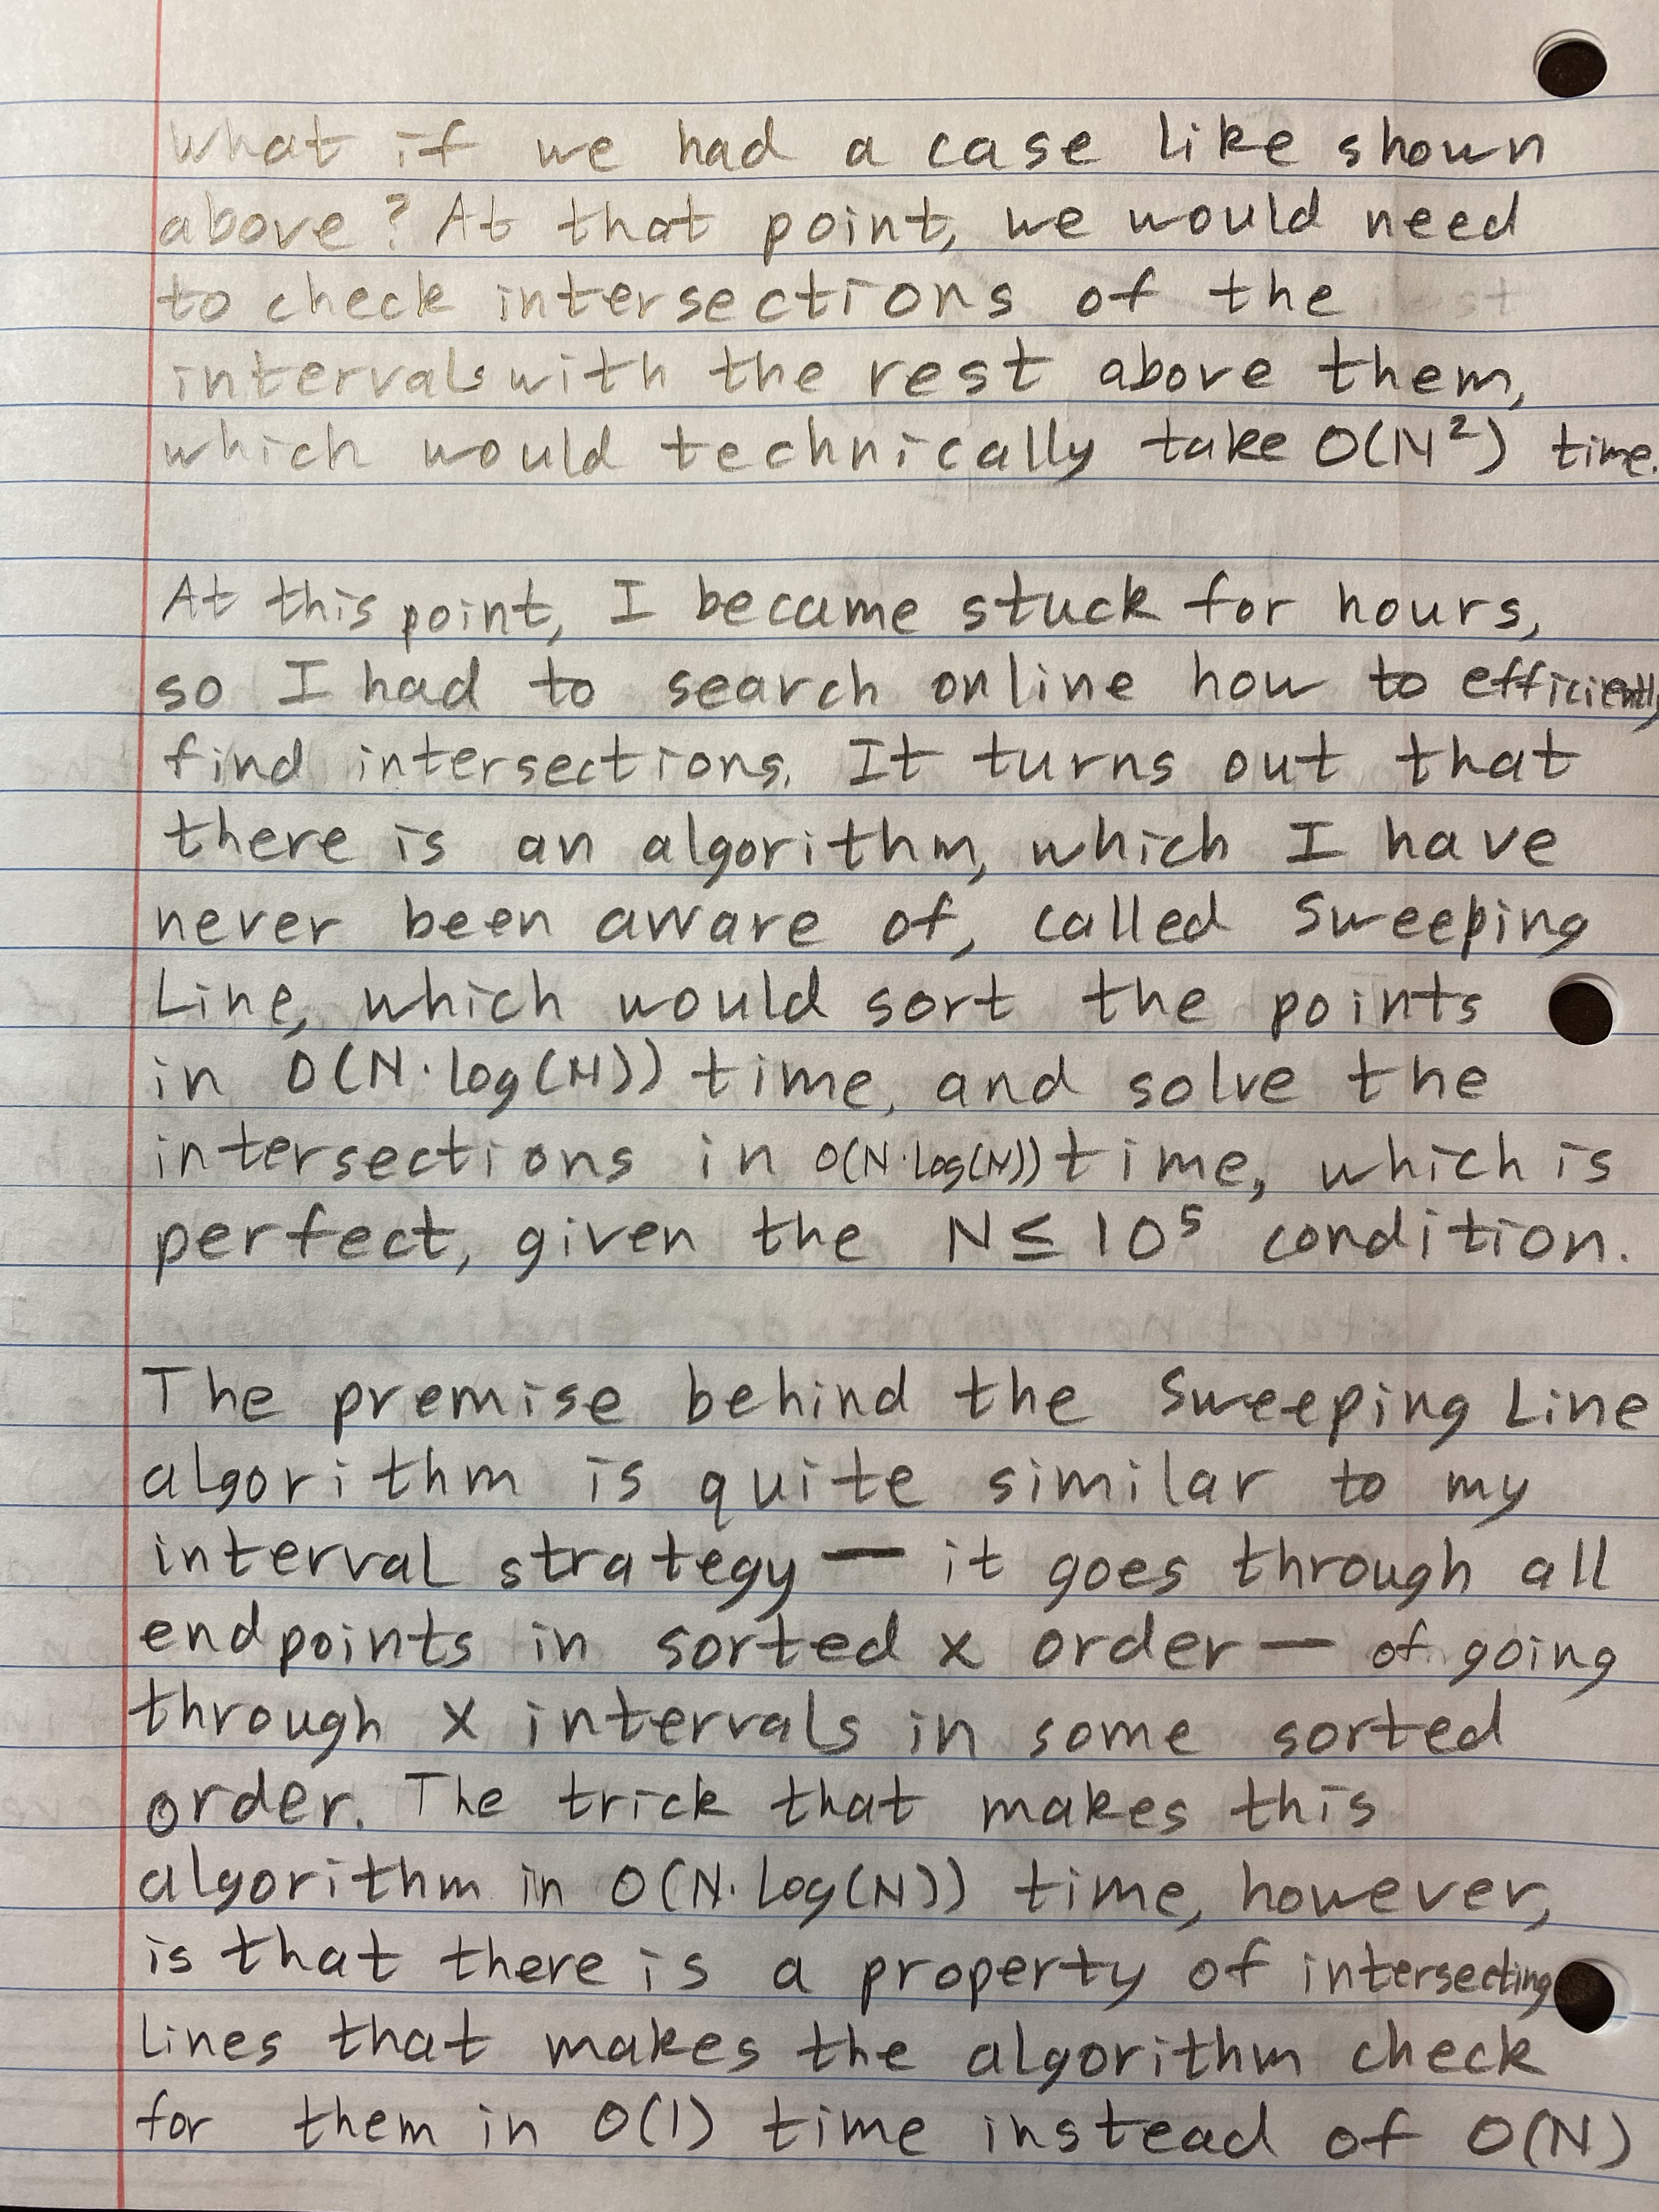 What if we had a case like shown
above? At that point, we would need
to check intersections of the
intervals with the rest above them,
which would technically take O(N²) time.
At this point, I became stuck for hours,
so I had to search online how to efficiently
find intersections. It turns out that
there is an algorithm, which I have
never been aware of, called Sweeping
Line, which would sort the points
in O(N·log(N)) time, and solve the
intersections in O(N·log(N)) time, which is
perfect, given the N ≤ 10⁵ condition.
The premise behind the Sweeping Line
algorithm is quite similar to my
interval strategy — it goes through all
endpoints in sorted x order — of going
through x intervals in some sorted
order. The trick that makes this
algorithm in O(N·log(N)) time, however,
is that there is a property of intersecting
lines that makes the algorithm check
for them in O(1) time instead of O(N)